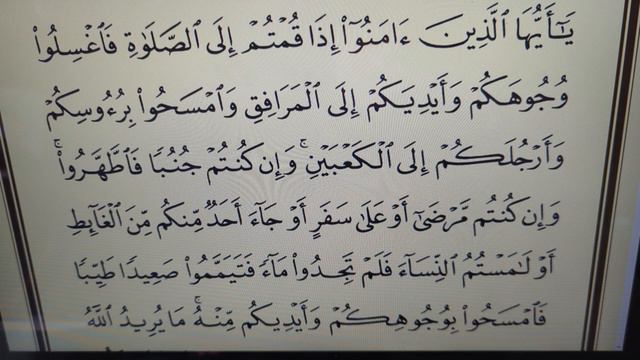 يَـٰٓأَيُّهَا ٱلَّذِينَ ءَامَنُوٓا۟ إِذَا قُمْتُمْ إِلَى ٱلصَّلَوٰةِ فَٱغْسِلُوا۟
وُجُوهَكُمْ وَأَيْدِيَكُمْ إِلَى ٱلْمَرَافِقِ وَٱمْسَحُوا۟ بِرُءُوسِكُمْ
وَأَرْجُلَكُمْ إِلَى ٱلْكَعْبَيْنِ ۚ وَإِن كُنتُمْ جُنُبًا فَٱطَّهَّرُوا۟ ۚ
وَإِن كُنتُم مَّرْضَىٰٓ أَوْ عَلَىٰ سَفَرٍ أَوْ جَآءَ أَحَدٌ مِّنكُم مِّنَ ٱلْغَآئِطِ
أَوْ لَـٰمَسْتُمُ ٱلنِّسَآءَ فَلَمْ تَجِدُوا۟ مَآءً فَتَيَمَّمُوا۟ صَعِيدًا طَيِّبًا
فَٱمْسَحُوا۟ بِوُجُوهِكُمْ وَأَيْدِيكُم مِّنْهُ ۚ مَا يُرِيدُ ٱللَّهُ